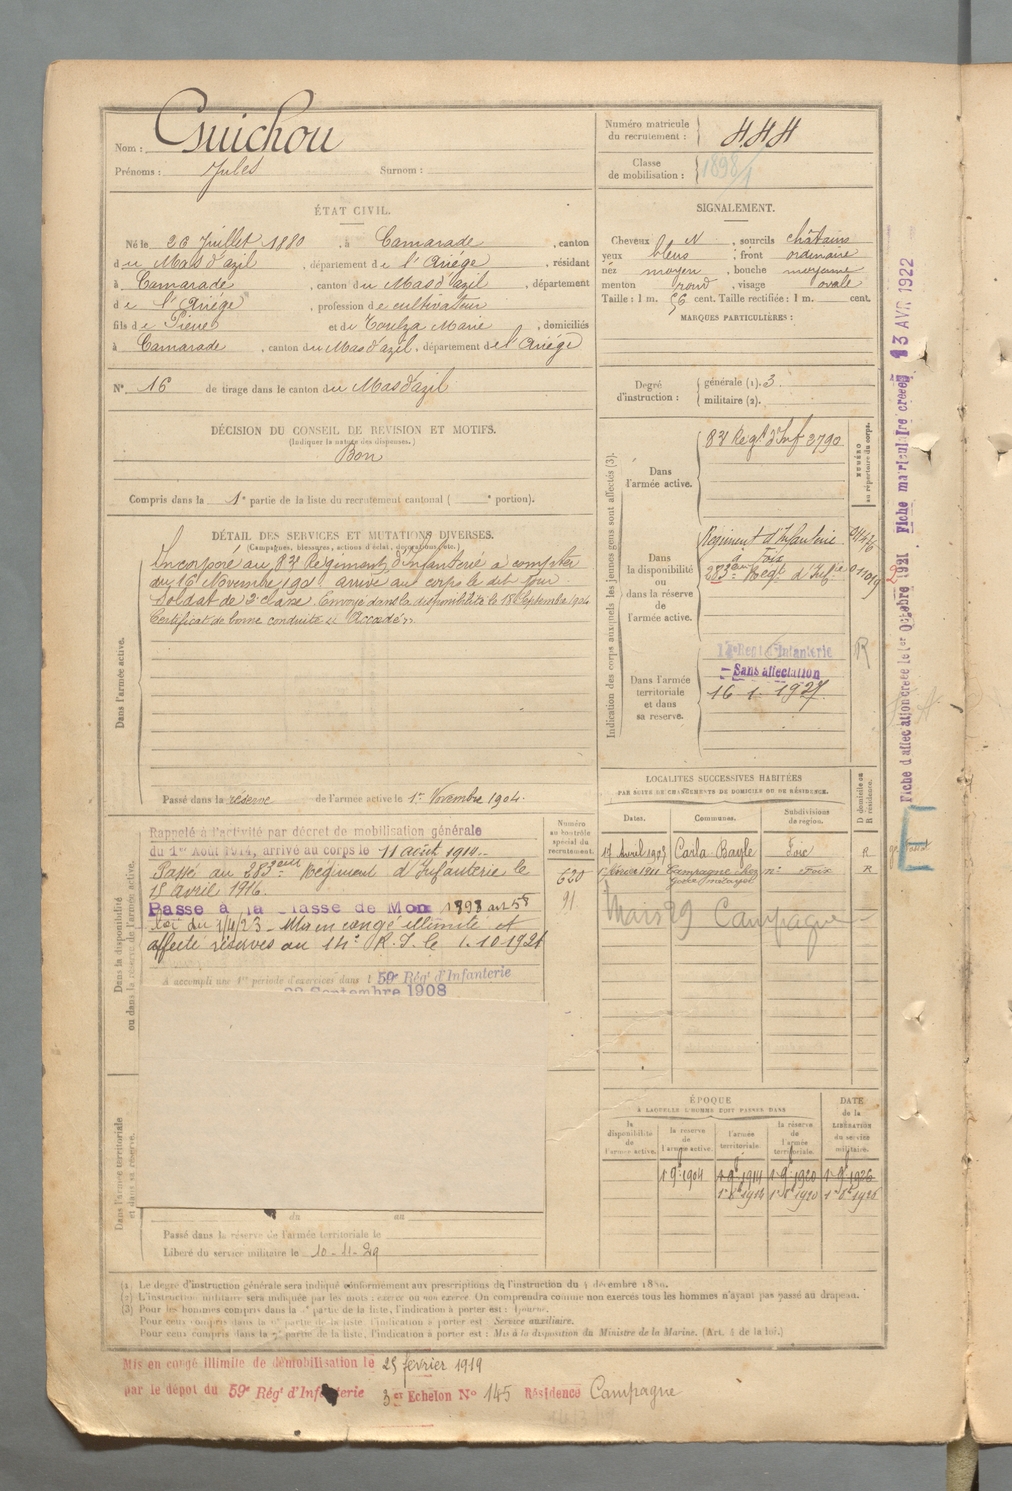 Nom : Guichou
Prénoms : Jules Surnom :
Numéro matricule du recrutement : 444
Classe de mobilisation : 1898/1
ÉTAT CIVIL.
Né le 20 Juillet 1880, à Camarade, canton
du Mas d'azil, département de l'Ariége, résidant
à Camarade, canton du Mas d'azil, département
de l'Ariége, profession de cultivateur
fils de Pierre et de Toulza Marie, domiciliés
à Camarade, canton du Mas d'azil, département de l'Ariége
N° 16 de tirage dans le canton du Mas d'azil
DÉCISION DU CONSEIL DE REVISION ET MOTIFS.
(Indiquer la nature des dispenses.)
Bon
Compris dans la 1e partie de la liste du recrutement cantonal ( e portion).
SIGNALEMENT.
Cheveux N, sourcils châtains
yeux bleus; front ordinaire
nez moyen, bouche moyenne
menton rond, visage ovale
Taille : 1 m. 56 cent. Taille rectifiée : 1 m. cent.
MARQUES PARTICULIÈRES :
Degré d'instruction : générale (1). 3
militaire (2).
DÉTAIL DES SERVICES ET MUTATIONS DIVERSES.
(Campagnes, blessures, actions d'éclat, décorations, etc.)
Dans l'armée active.
Incorporé au 83e Régiment d'infanterie à compter
du 16 Novembre 1901 arrivé au corps le dit jour
Soldat de 2e classe. Envoyé dans la disponibilité le 18 Septembre 1904
Certificat de bonne conduite « Accordé »
Passé dans la réserve de l'armée active le 1er Novembre 1904.
Indication des corps auxquels les jeunes gens sont affectés (3).
NUMÉRO au répertoire du corps.
Dans l'armée active.
83e Regt d'Inf 3790
Dans la disponibilité ou dans la réserve de l'armée active.
Régiment d'Infanterie
à Foix
283e Regt d'Infie 011019
Dans l'armée territoriale et dans sa reserve.
Regt d'Infanterie R
Sans affectation
16-1-1927
Dans la disponibilité ou dans la réserve de l'armée active.
Numéro au contrôle spécial du recrutement.
620
91
Rappelé à l'activité par décret de mobilisation générale
du 1er Août 1914, arrivé au corps le 11 août 1914.
Passé au 283eme Régiment d'Infanterie le
15 avril 1916.
Passé à la classe de Mob 1898 art 58
loi du 1/4/23 - Mis en congé illimité et
affecté réserves au 14e R.I. le 1.10.1921
A accompli une 1re période d'exercices dans l 59e Régt d'Infanterie
Septembre 1908
LOCALITÉS SUCCESSIVES HABITÉES
PAR SUITE DE CHANGEMENTS DE DOMICILE OU DE RÉSIDENCE.
Dates. Communes. Subdivisions de région. D domicile ou R résidence.
17 Avril 1905 Carla Bayle Foix R
Campagne Foix R
Mars 29 Campagne
ÉPOQUE
A LAQUELLE L'HOMME DOIT PASSER DANS
la disponibilité de l'armée active.
la réserve de l'armée active.
l'armée territoriale.
la réserve de l'armée territoriale.
DATE de la LIBÉRATION du service militaire.
1er 9bre 1904 1er 9bre 1914 1er 9bre 1920 1er 9bre 1926
Dans l'armée territoriale et dans sa réserve.
du au
Passé dans la réserve de l'armée territoriale le
Libéré du service militaire le 10-11-29
(1) Le degré d'instruction générale sera indiqué conformément aux prescriptions de l'instruction du 4 décembre 1889.
(2) L'instruction militaire sera indiquée par les mots : exercé ou non exercé. On comprendra comme non exercés tous les hommes n'ayant pas passé au drapeau.
(3) Pour les hommes compris dans la partie de la liste, l'indication à porter est :
Pour ceux compris dans la partie de la liste, l'indication à porter est : Service auxiliaire.
Pour ceux compris dans la partie de la liste, l'indication à porter est : Mis à la disposition du Ministre de la Marine. (Art. 4 de la loi.)
Mis en congé illimité de démobilisation le 25 février 1919
par le dépôt du 59e Régt d'Infanterie 3e Echelon N° 145 Résidence Campagne
Fiche d'affectation créée le 1er Octobre 1921. Fiche matriculaire créée 13 AVR 1922
E